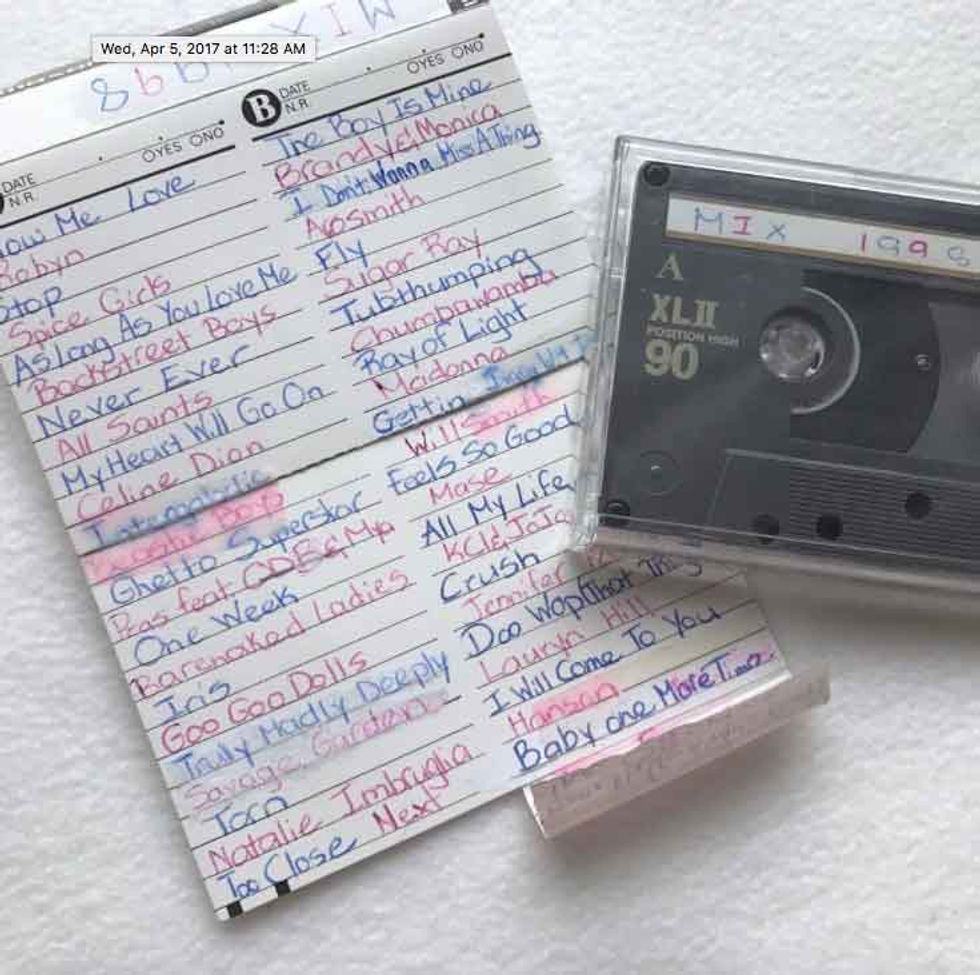 Wed, Apr 5, 2017 at 11:28 AM
MIX
DATE
N.R.
OYES ONO
ow Me Love
Robyn
Stop
Spice Girls
As long As You Love Me
Backstreet Boys
Never Ever
All Saints
My Heart Will Go On
Celine Dion
Intergalactic
Boys
Ghetto Superstar
Pras feat ODB & Mya
One Week
Barenaked Ladies
Iris
Goo Goo Dolls
Truly Madly Deeply
Savage Garden
Torn
Natalie Imbruglia
Too Close Next
B DATE
N.R.
OYES ONO
The Boy Is Mine
Brandy & Monica
I Don't Wanna Miss A Thing
Aerosmith
Fly
Sugar Ray
Tubthumping
Chumbawamba
Ray of Light
Madonna
Gettin Jiggy Wit
Will Smith
Feels So Good
Mase
All My Life
KCi & JoJo
Crush
Jennifer
Doo Wop (That Thing
Lauryn Hill
I Will Come To You
Hanson
Baby one More Time
MIX 1998
A
XLII
POSITION HIGH
90